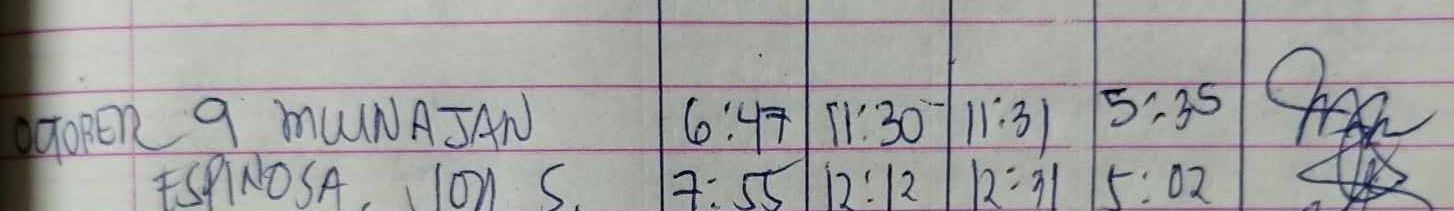 OCTOBER 9 MUINAJAN 6:47 11:30 11:31 5:35
ESPINOSA, JON S. 7:55 12:12 12:31 5:02